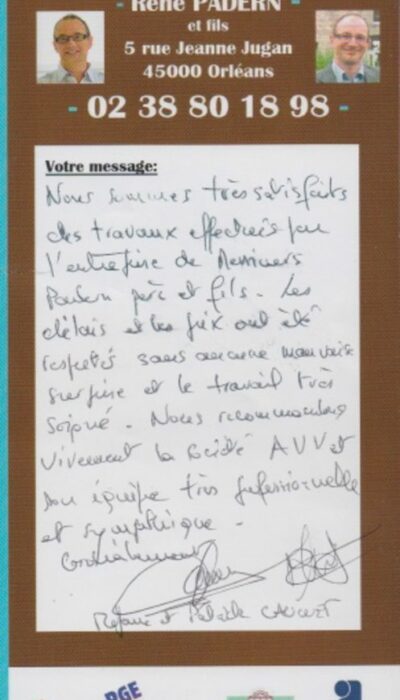 - René PADERN -
et fils
5 rue Jeanne Jugan
45000 Orléans
- 02 38 80 18 98 -
Votre message:
Nous sommes très satisfaits
des travaux effectués par
l'entreprise de Messieurs
Padern père et fils. Les
délais et les prix ont été
respectés sans aucune mauvaise
surprise et le travail très
soigné. Nous recommandons
vivement la Société AVV et
son équipe très professionnelle
et sympathique.
Cordialement
et
RGE